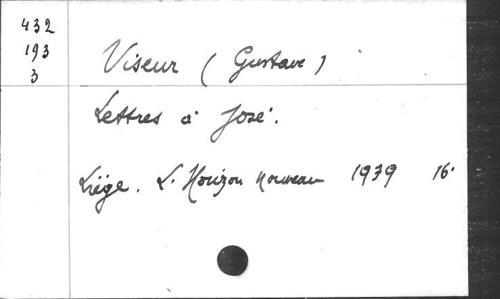 432
193
3
Viseur (Gustave)
Lettres à José.
Liège. L'Horizon nouveau 1939 16°